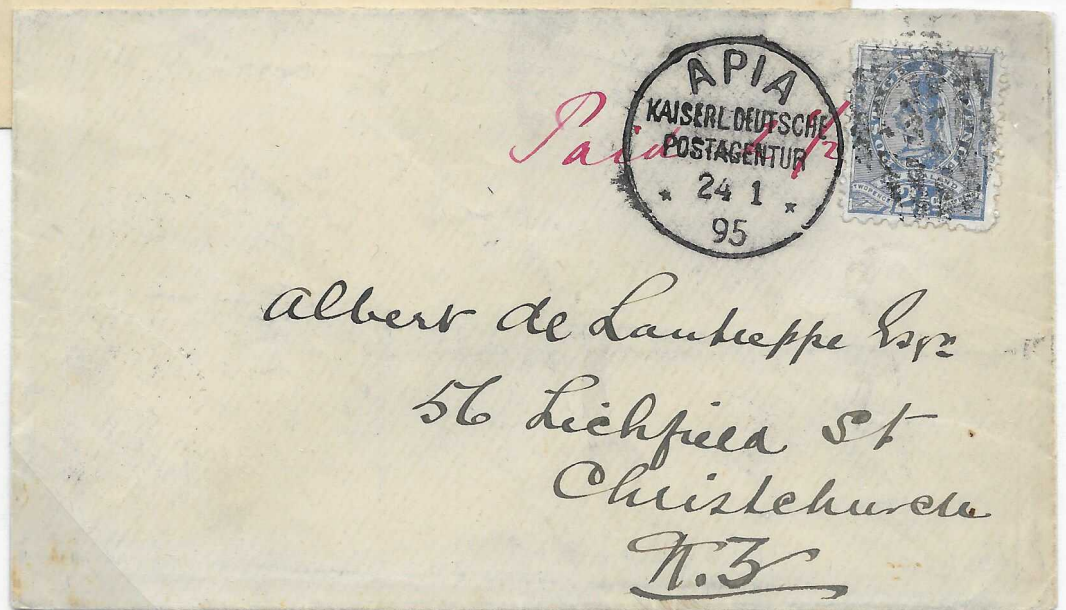 APIA
KAISERL. DEUTSCHE
POSTAGENTUR
* 24 1 *
95
Paid
Albert de Lautreppe Esqre
56 Lichfield St
Christchurch
N.Z